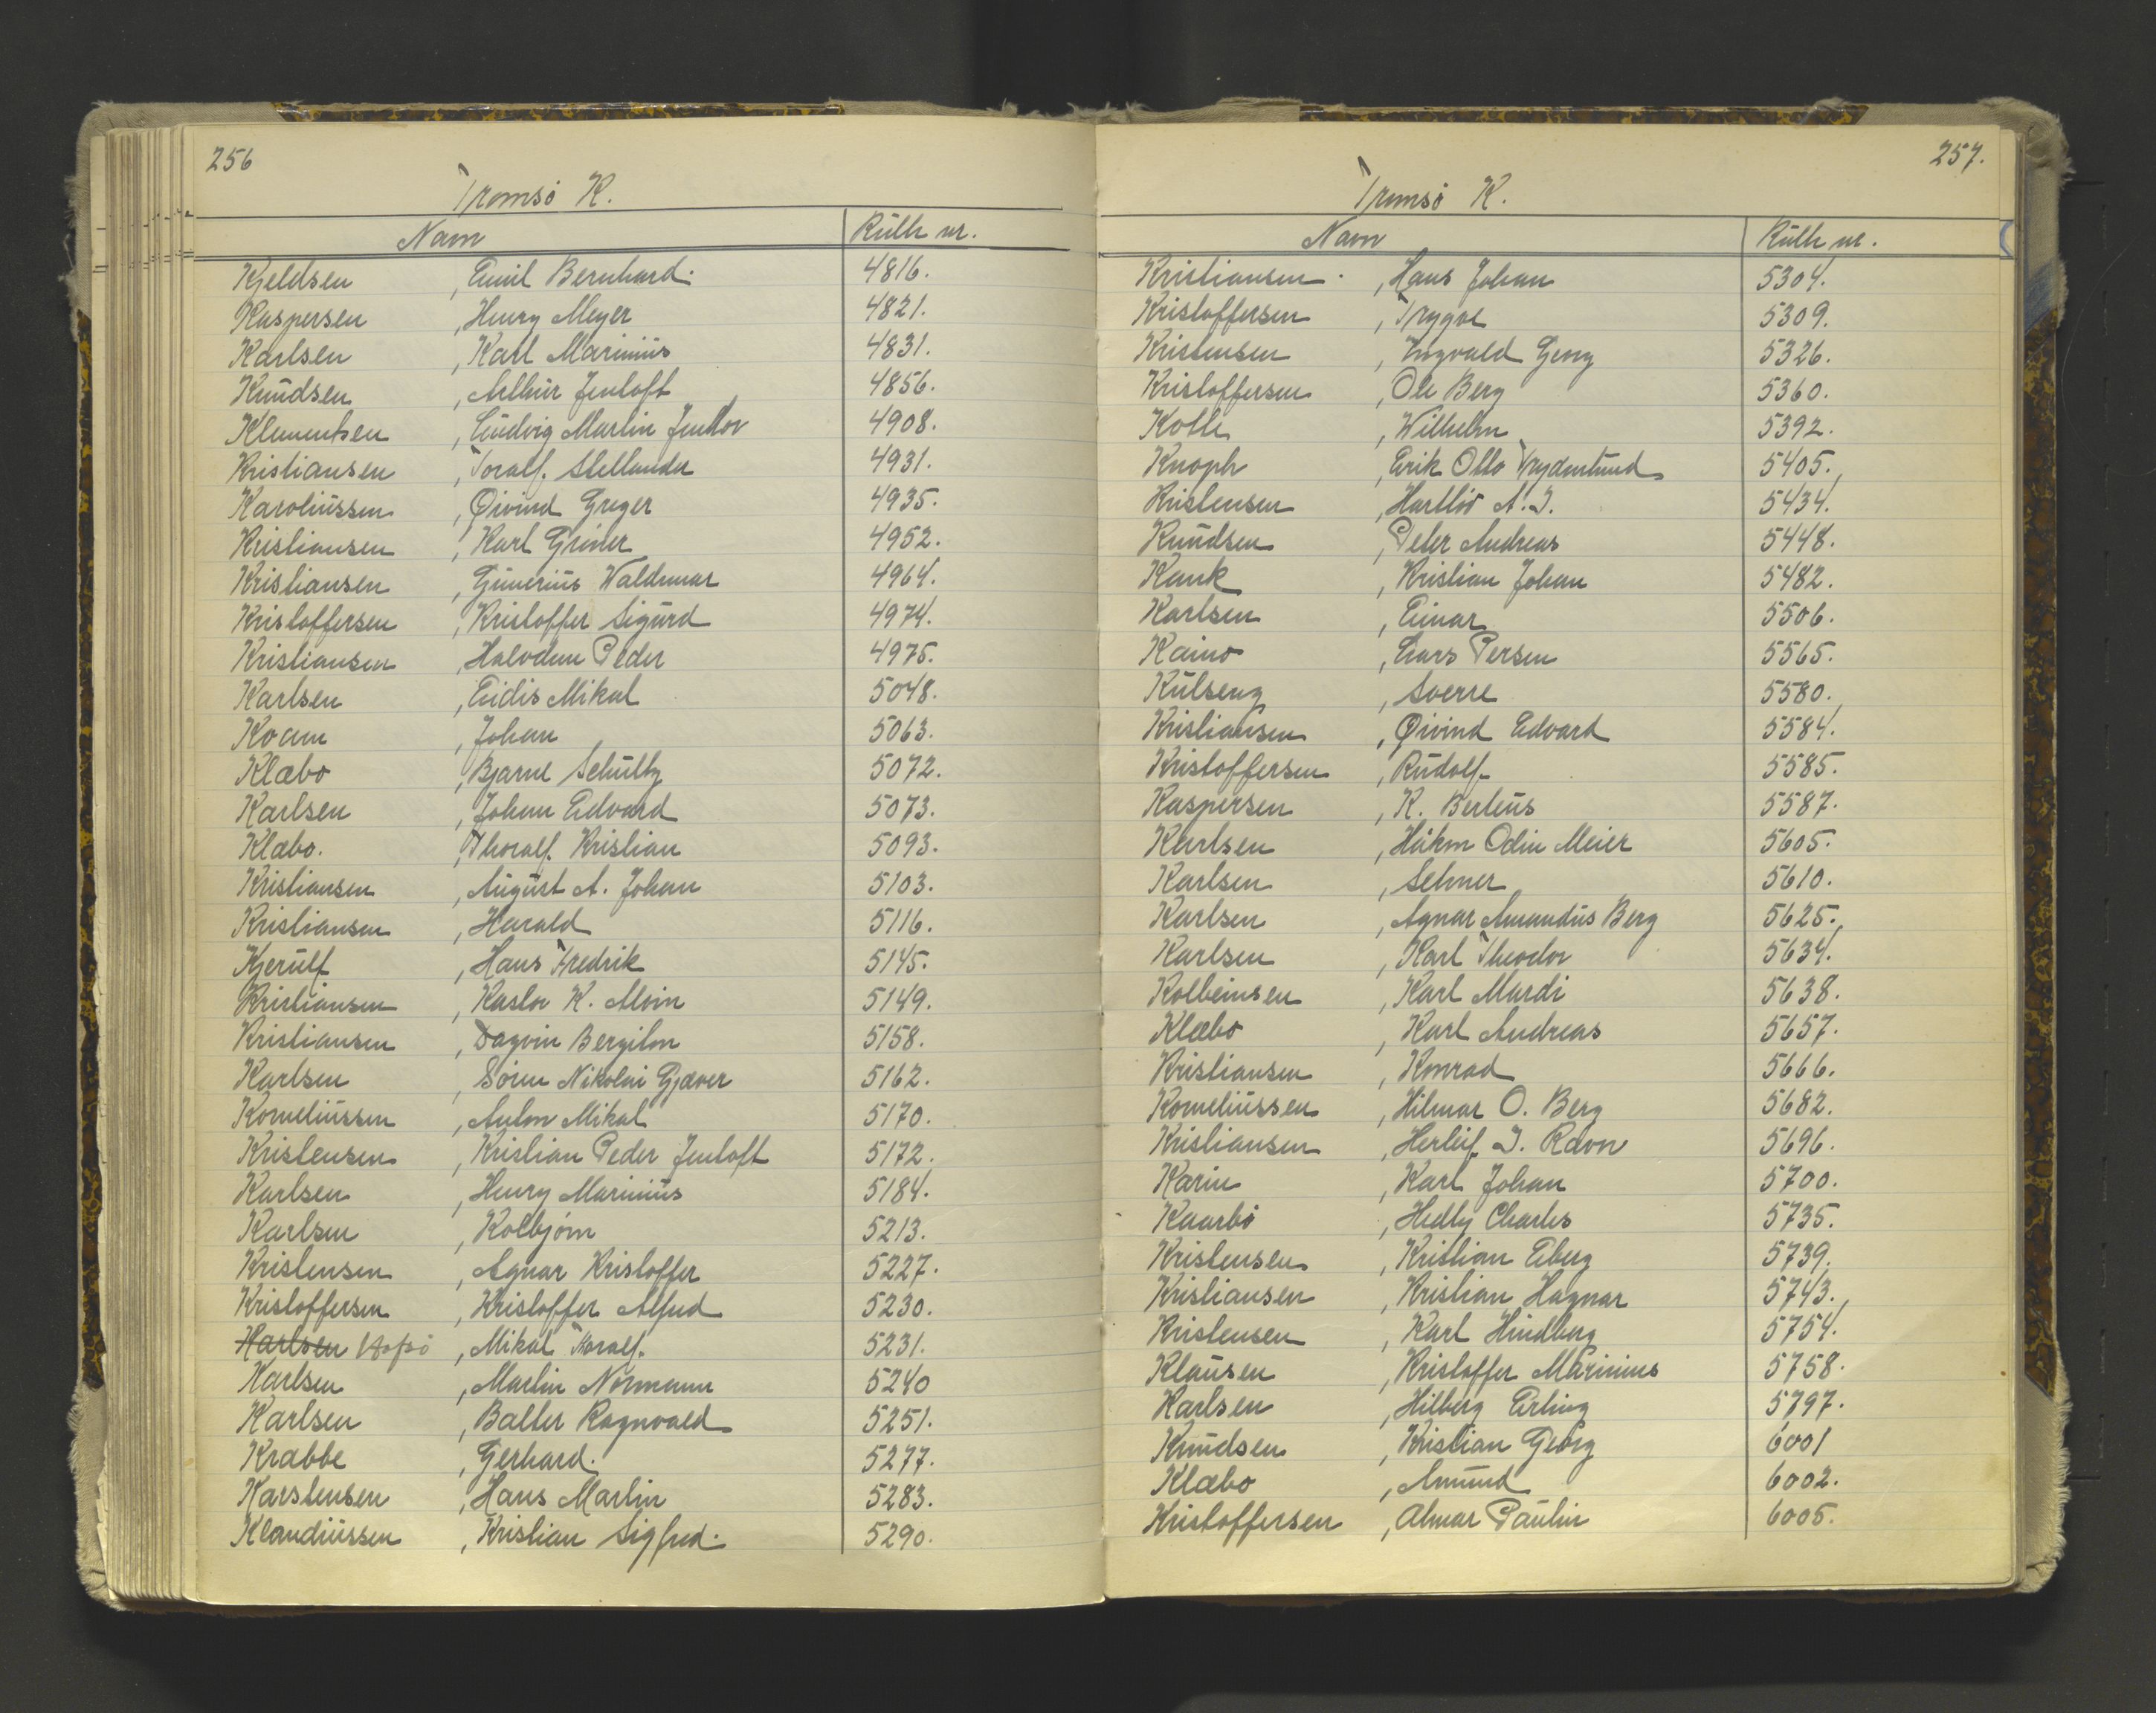 256
Tromsö K.
Navn Rulle nr.
Kjeldsen , Emil Bernhard. 4816.
Kaspersen , Henry Meyer 4821.
Karlsen , Karl Marinius 4831.
Knudsen , Arthur Jentoft 4856.
Klementsen , Ludvig Martin 4908.
Kristiansen , Toralf Stellander 4931.
Karoliussen , Øivind Greger 4935.
Kristiansen , Karl Griner 4952.
Kristiansen , Gunerius Waldemar 4964.
Kristoffersen , Kristoffer Sigurd 4974.
Kristiansen , Halvdan Peder 4975.
Karlsen , Eidis Mikal 5048.
Koam , Johan 5063.
Klæbo , Bjarne Schultz 5072.
Karlsen , Johan Edvard 5073.
Klæbo. , Thoralf Kristian 5093.
Kristiansen , August A. Johan 5103.
Kristiansen , Harald 5116.
Kjerulf , Hans Fredrik 5145.
Kristiansen , Kastor K. Alvin 5149.
Kristiansen , Dagvin Bergiton 5158.
Karlsen , Sören Nikolai Gjæver 5162.
Korneliussen , Anton Mikal 5170.
Kristensen , Kristian Peder Jentoft 5172.
Karlsen , Henry Marinius 5184.
Karlsen , Kolbjörn 5213.
Kristensen , Agnar Kristoffer 5227.
Kristoffersen , Kristoffer Alfred 5230.
Karlsen , Mikal Toralf. 5231.
Karlsen , Martin Normann 5240
Karlsen , Balter Ragnvald 5251.
Krabbe , Gerhard. 5277.
Karstensen , Hans Martin 5283.
Klaudiussen , Kristian Sigfred. 5290.
257.
Tromsö K.
Navn Rulle nr.
Kristiansen , Hans Johan 5304.
Kristoffersen , Trygve 5309.
Kristensen , Ingvald Georg 5326.
Kristoffersen , Ole Berg 5360.
Kolle , Wilhelm 5392.
Knoph , Erik Otto Frydenlund 5405.
Kristensen , Hartliv A. I. 5434.
Knudsen , Peter Andreas 5448.
Kank , Kristian Johan 5482.
Karlsen , Einar 5506.
Kaino , Lars Persen 5565.
Kulseng , Sverre 5580.
Kristiansen , Øivind Edvard 5584.
Kristoffersen , Rudolf 5585.
Kaspersen , K. Berteus 5587.
Karlsen , Håkon Odin Meier 5605.
Karlsen , Selmer 5610.
Karlsen , Agnar Amandus Berg 5625.
Karlsen , Karl Theodor 5634.
Kolbeinsen , Karl Mardi 5638.
Klæbo , Karl Andreas 5657.
Kristiansen , Konrad 5666.
Korneliussen , Hilmar O. Berg 5682.
Kristiansen , Herleif I. Ravn 5696.
Karin , Karl Johan 5700.
Kaarbö , Hedly Charles 5735.
Kristensen , Kristian Eberg 5739.
Kristiansen , Kristian Hagnar 5743.
Kristensen , Karl Hindberg 5754.
Klausen , Kristoffer Marinius 5758.
Karlsen , Hilberg Erling 5797.
Knudsen , Kristian Georg 6001
Klæbo , Amund 6002.
Kristoffersen , Almar Paulin 6005.